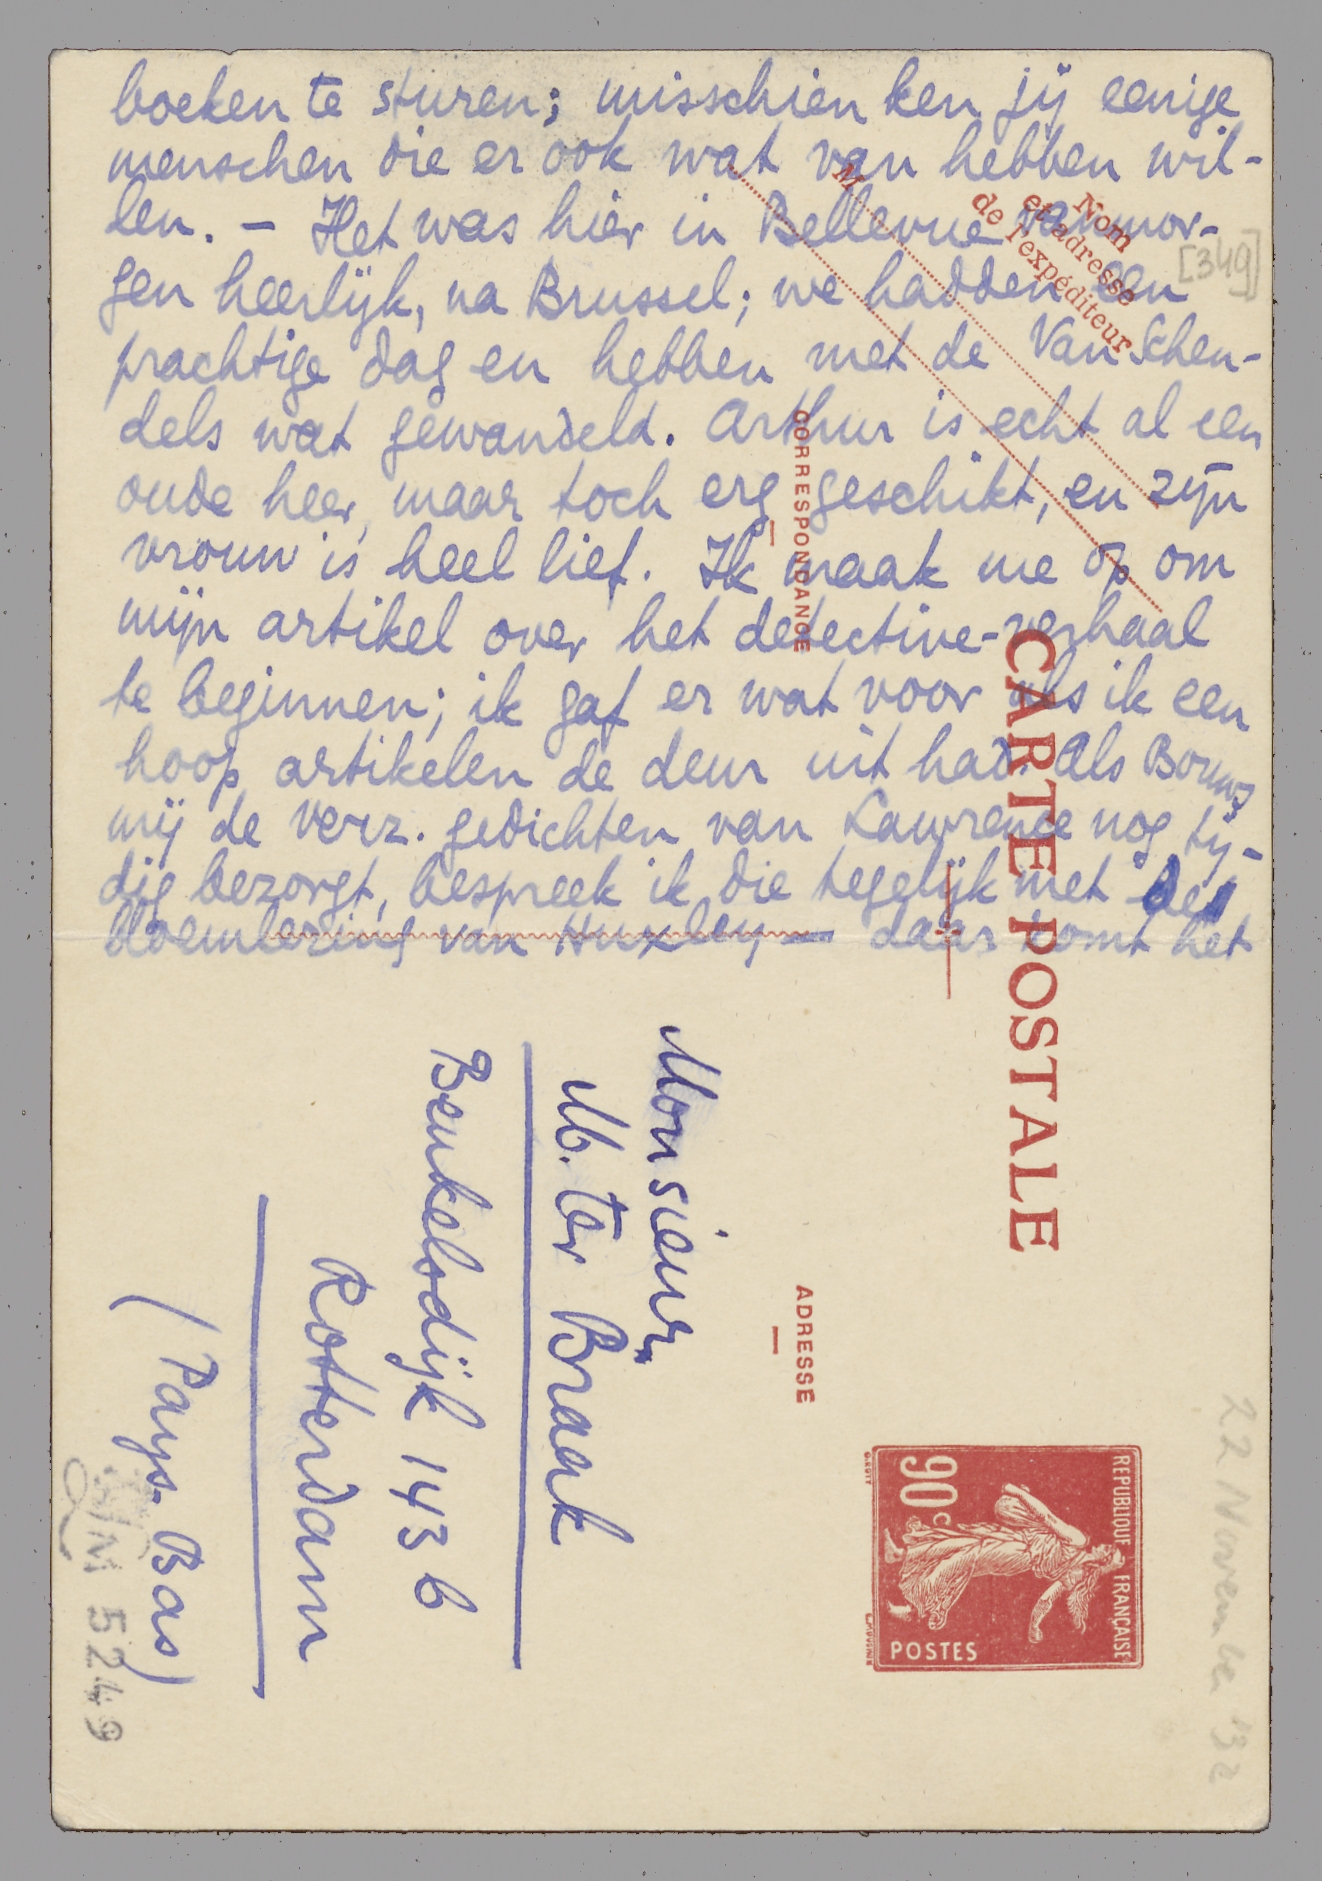 boeken te sturen; misschien ken jij eenige
menschen die er ook wat van hebben wil-
len. – Het was hier in Bellevue vanmor-
gen heerlijk, na Brussel; we hadden een
prachtige dag en hebben met de Van Schen-
dels wat gewandeld. Arthur is echt al een
oude heer, maar toch erg geschikt, en zijn
vrouw is heel lief. Ik maak me op om
mijn artikel over het detective-verhaal
te beginnen; ik gaf er wat voor als ik een
hoop artikelen de deur uit had. Als Bouws
mij de verz. gedichten van Lawrence nog tij-
dig bezorgt, bespreek ik die tegelijk met de
bloemlezing van Huxley — daar komt het
[349]
M
Nom
et adresse
de l'expéditeur
CORRESPONDANCE
CARTE POSTALE
ADRESSE
REPUBLIQUE FRANÇAISE
90c
POSTES
Monsieur
M. ter Braak
Beukelsdijk 143 b
Rotterdam
(Pays-Bas)
22 November '32
M 5249